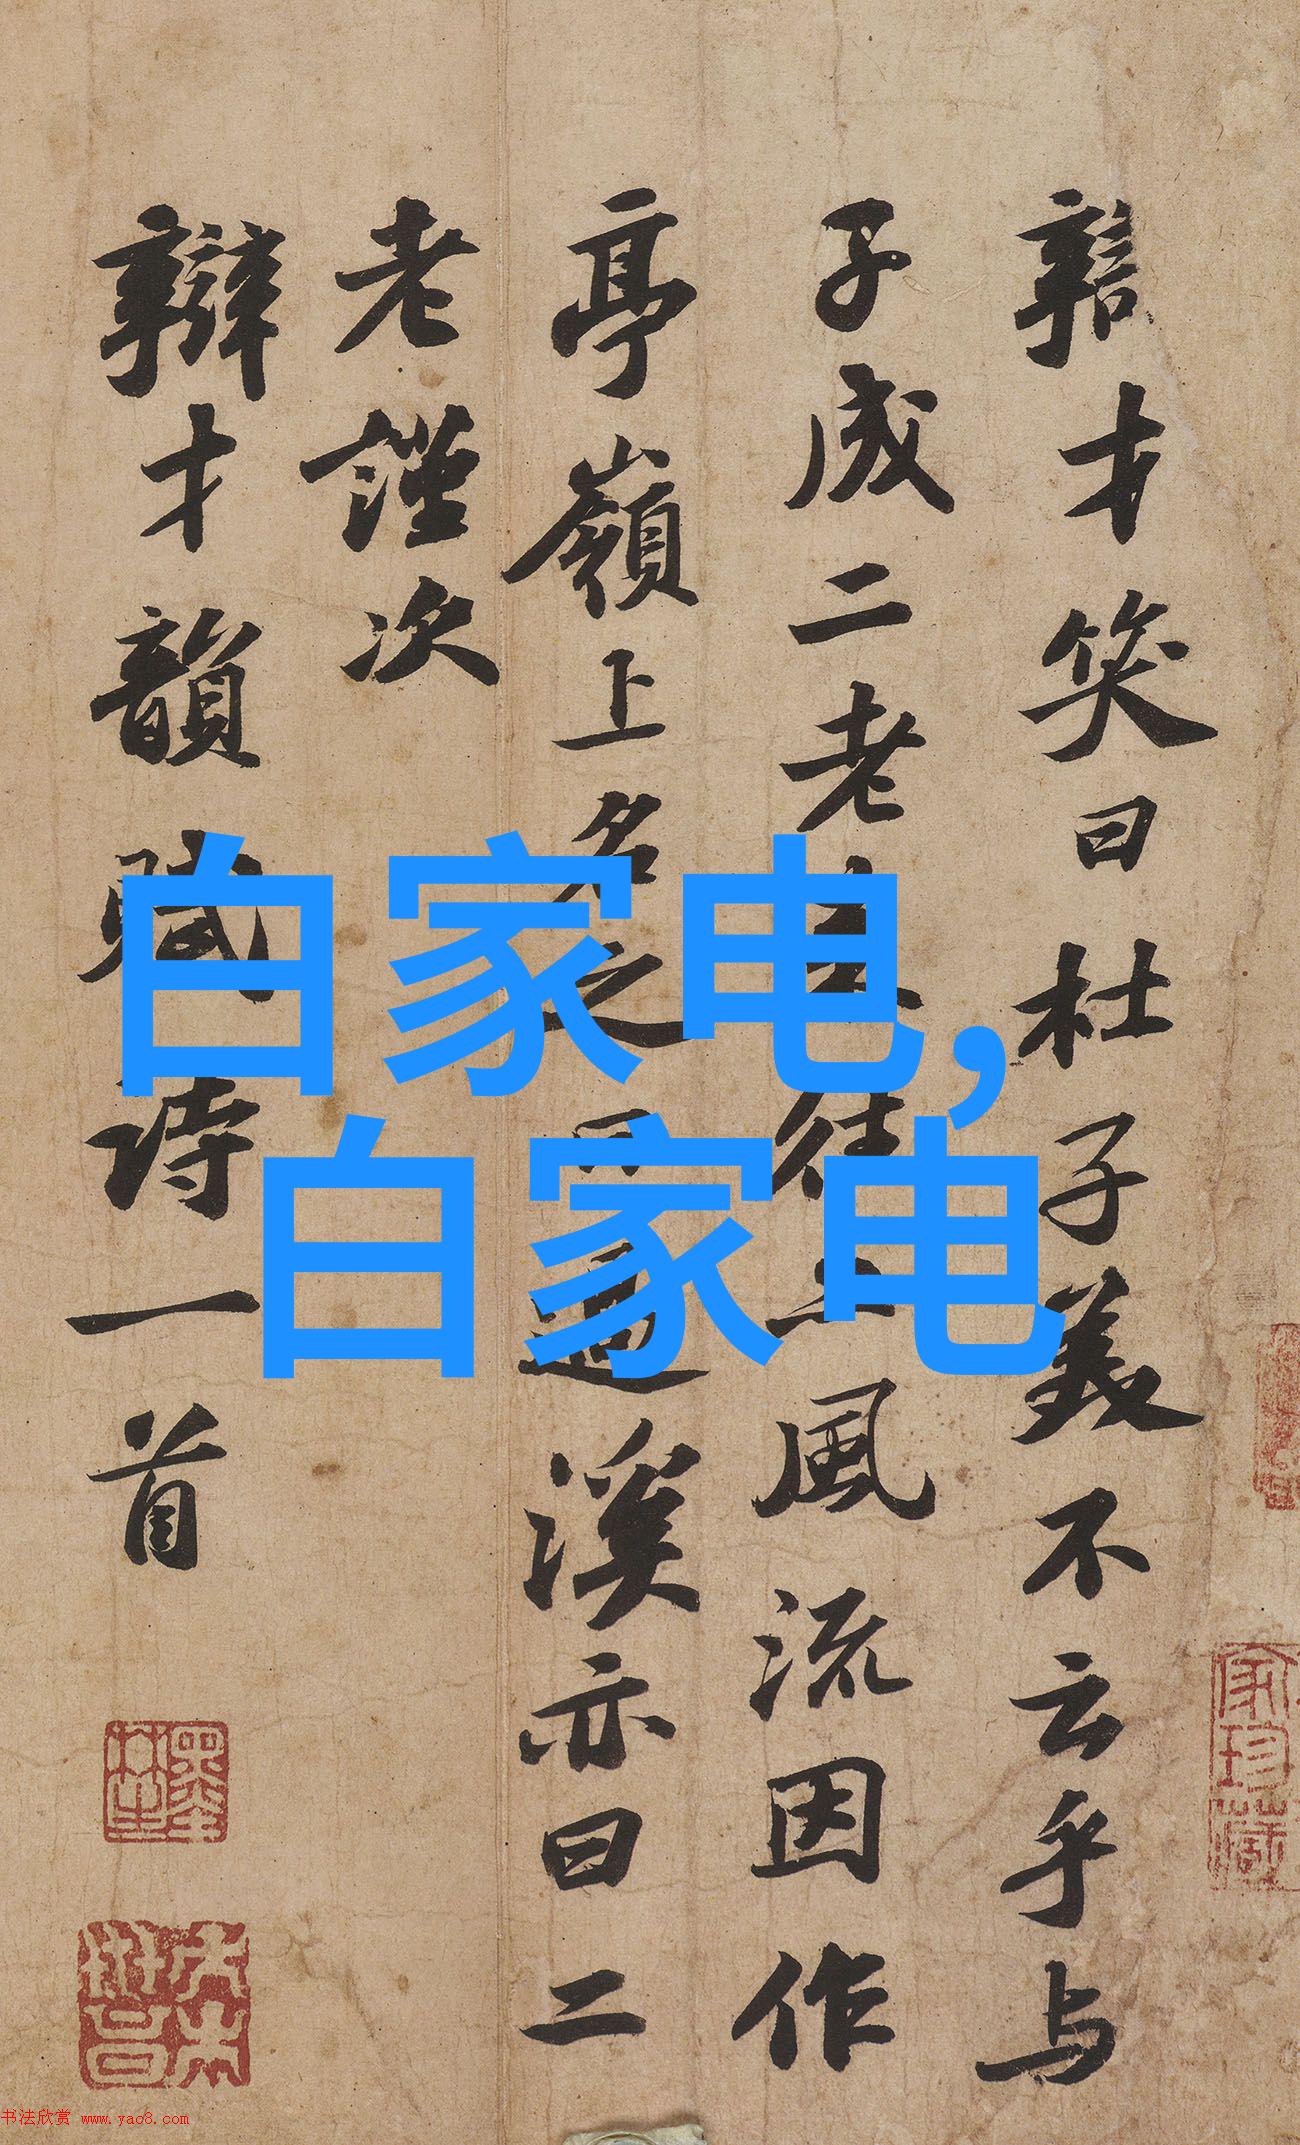 才笑曰杜子美不云乎与
子成二老往風流因作
亭嶺上名之過溪亦曰二
老謹次
辯才韻賦詩一首
白家电,
白家电
家珍藏
书法欣赏 www.yac8.com